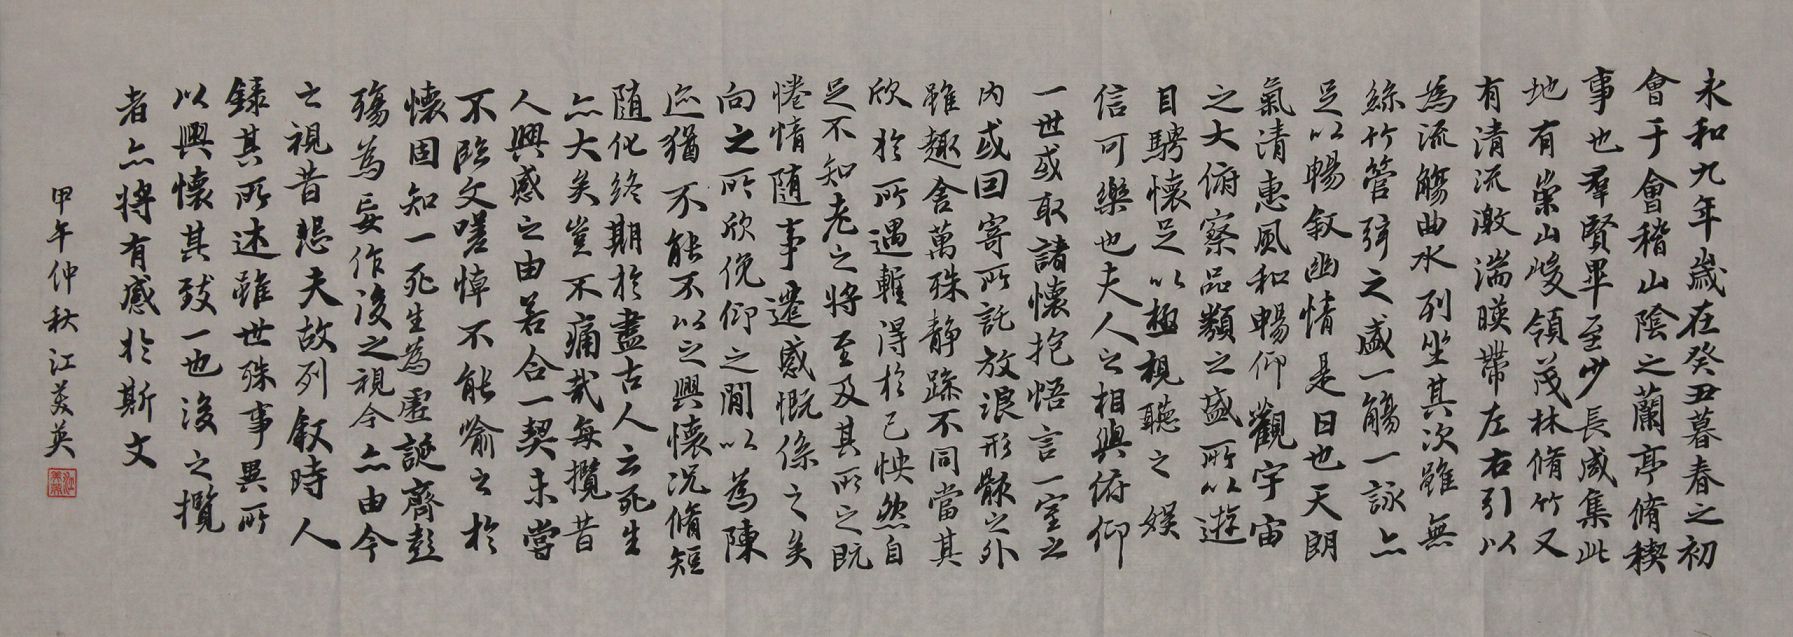 永和九年歲在癸丑暮春之初
會于會稽山陰之蘭亭脩稧
事也羣賢畢至少長咸集此
地有崇山峻領茂林脩竹又
有清流激湍暎帶左右引以
為流觴曲水列坐其次雖無
絲竹管弦之盛一觴一詠亦
足以暢叙幽情是日也天朗
氣清惠風和暢仰觀宇宙
之大俯察品類之盛所以遊
目騁懷足以極視聽之娛
信可樂也夫人之相與俯仰
一世或取諸懷抱悟言一室之
內或因寄所託放浪形骸之外
雖趣舍萬殊靜躁不同當其
欣於所遇蹔得於己怏然自
足不知老之將至及其所之既
惓情隨事遷感慨係之矣
向之所欣俛仰之間以為陳
迹猶不能不以之興懷況脩短
隨化終期於盡古人云死生
亦大矣豈不痛哉每攬昔
人興感之由若合一契未嘗
不臨文嗟悼不能喻之於
懷固知一死生為虛誕齊彭
殤為妄作後之視今亦由今
之視昔悲夫故列叙時人
錄其所述雖世殊事異所
以興懷其致一也後之攬
者亦將有感於斯文
甲午仲秋江美英